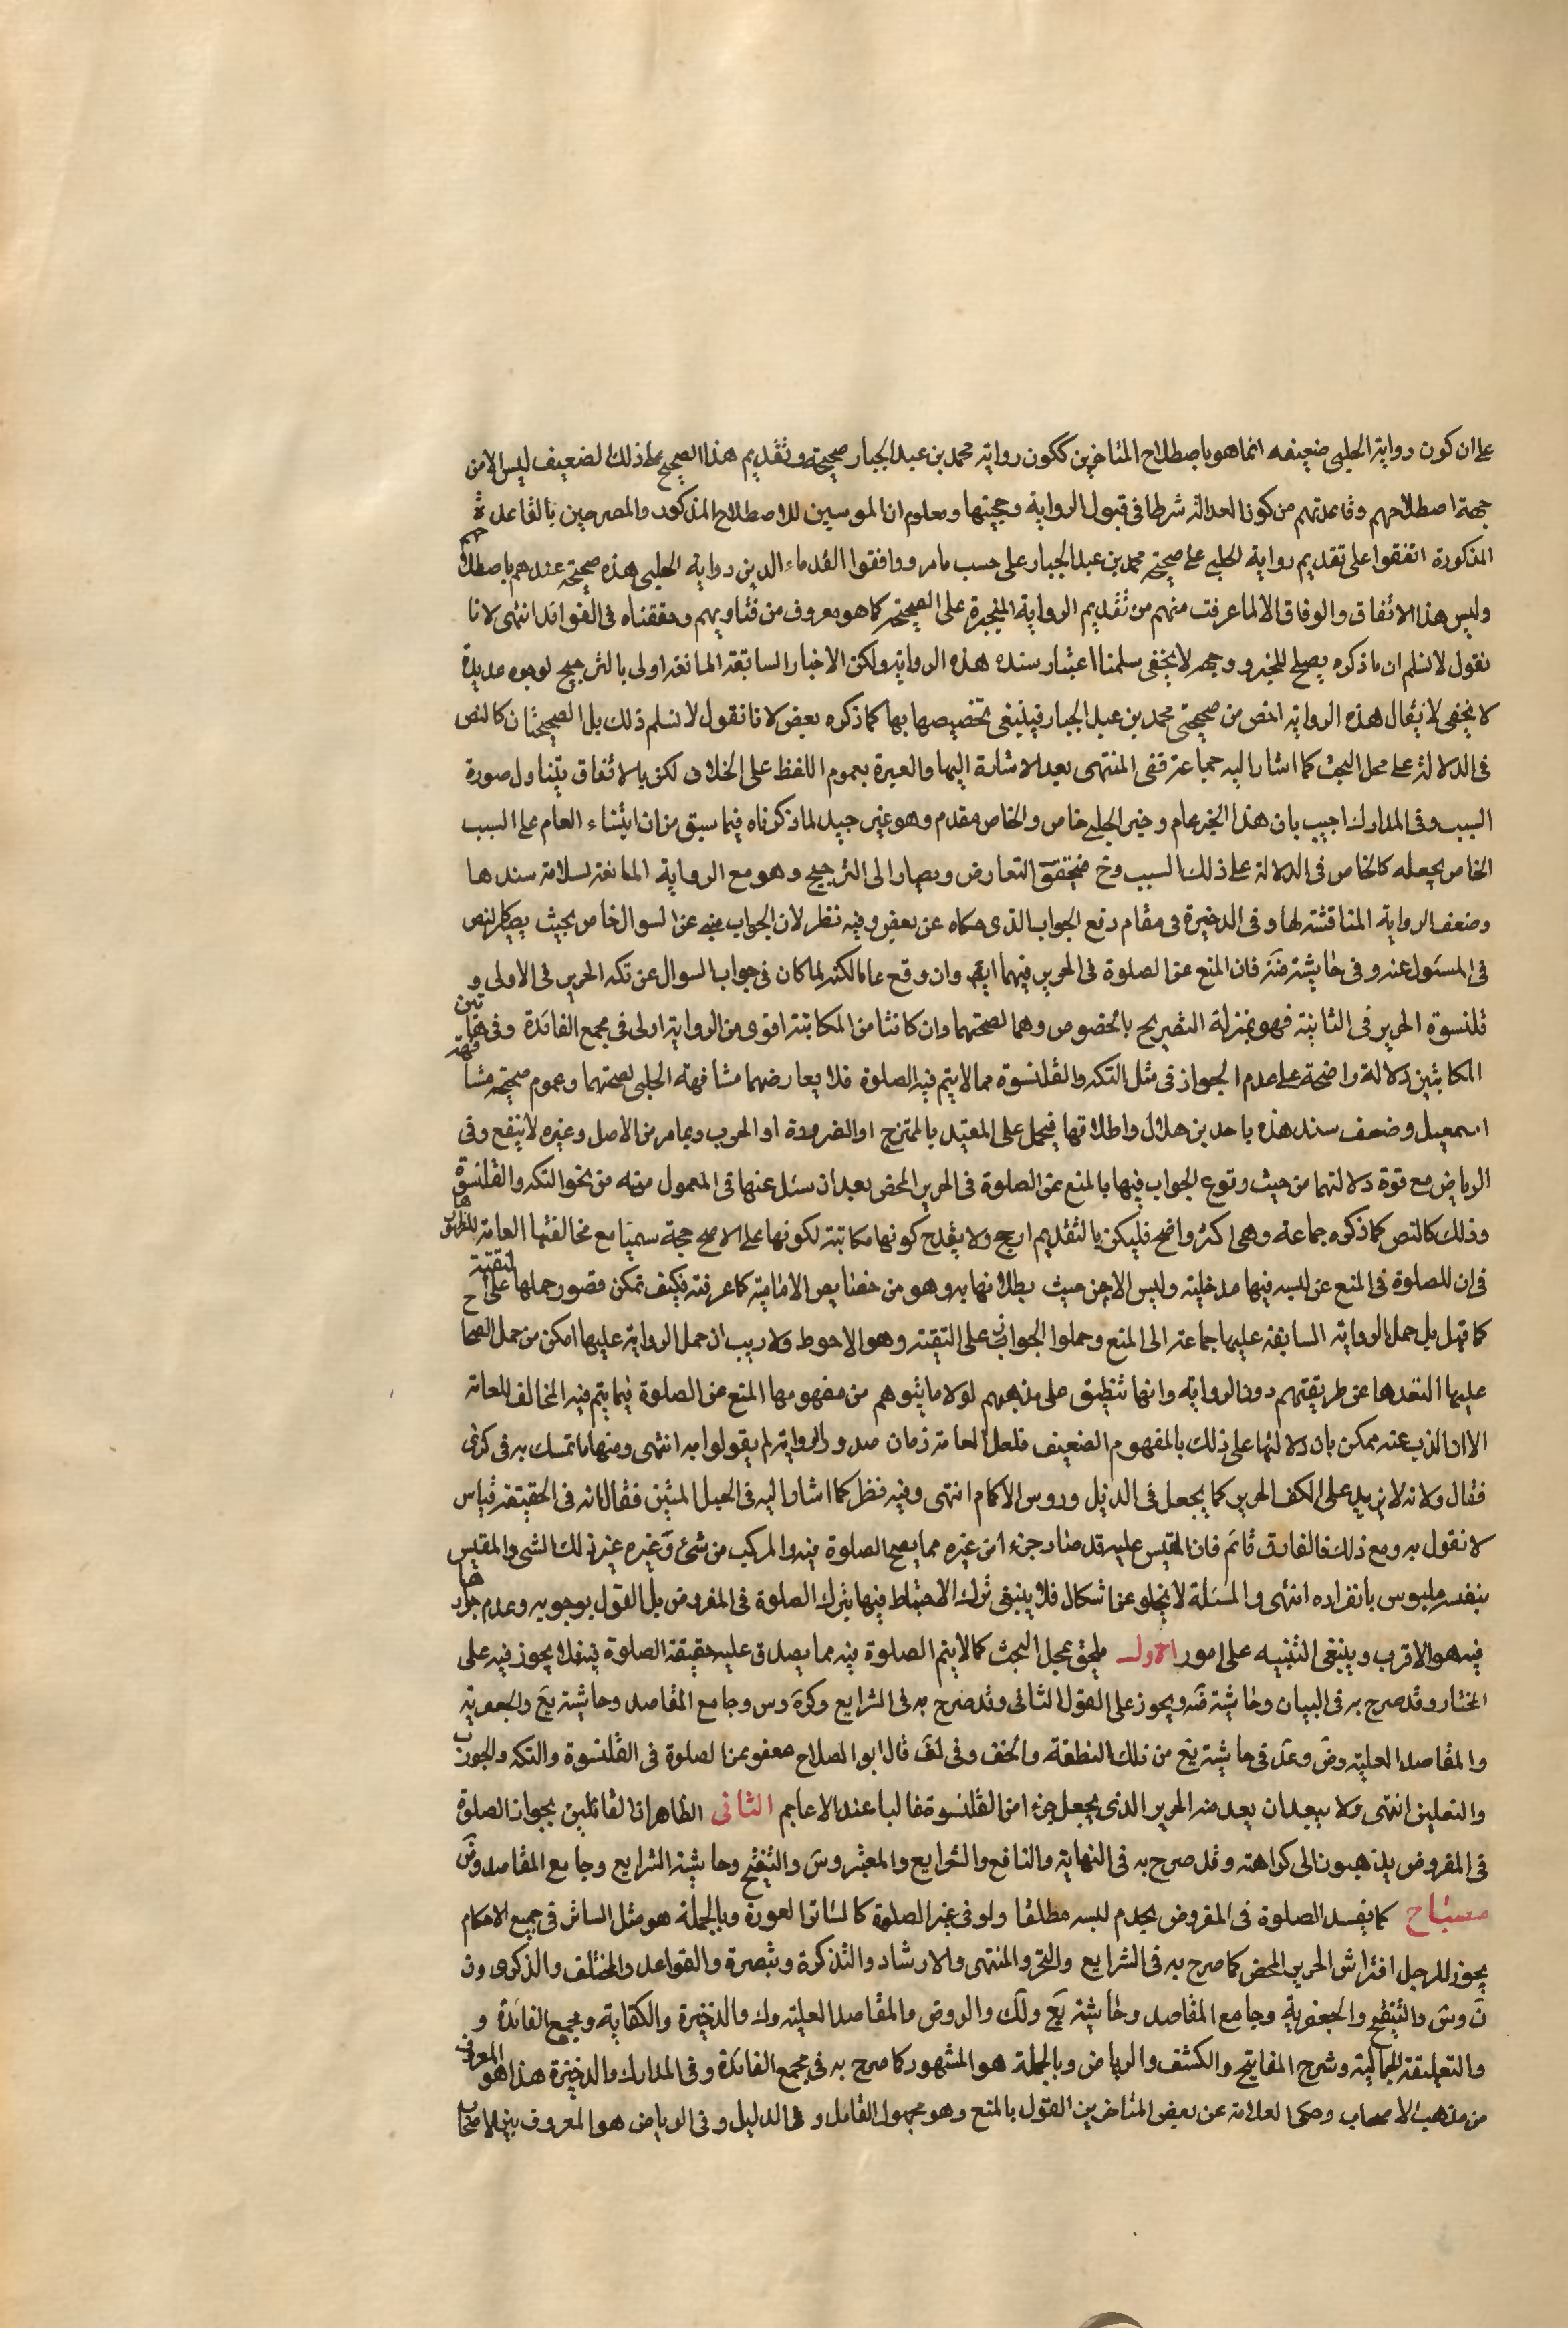 على ان كون رواية الحلبى ضعيفه انما هو باصطلاح المتاخرين ككون رواية محمد بن عبد الجبار صحيحة وتقديم هذا الصحيح على ذلك الضعيف ليس الا من
جهة اصطلاحهم وقاعدتهم من كون العدالة شرطا فى قبول الرواية وحجيتها ومعلوم ان الموسسين للاصطلاح المذكور والمصرحين بالقاعدة
المذكورة اتفقوا على تقديم رواية الحلبى على صحيحة محمد بن عبد الجبار على حسب ما مر ووافقوا القدماء الذين رواية الحلبى هذه صحيحة عندهم باصطلاحهم
وليس هذا الاتفاق والوفاق الا لما عرفت منهم من تقديم الرواية المنجبرة على الصحيحة كما هو معروف من فتاويهم وحققناه فى الفوائد انتهى لانا
نقول لا نسلم ان ما ذكره يصلح للجبر ووجهه لا يخفى سلمنا اعتبار سنده هذه الرواية ولكن الاخبار السابقة المانعه اولى بالترجيح لوجوه عديدة
لا يخفى لا يقال هذه الرواية اخص من صحيحتى محمد بن عبد الجبار فينبغى تخصيصها بها كما ذكره بعض لانا نقول لا نسلم ذلك بل الصحيحتان كالنص
فى الدلالة على محل البحث كما اشار اليه جماعة ففى المنتهى بعد الاشارة اليها والعبرة بعموم اللفظ على الخلاف لكن بالاتفاق يتناول صورة
السبب وفى المدارك اجيب بان هذا الخبر عام وخبر الحلبى خاص والخاص مقدم وهو غير جيد لما ذكرناه فيما سبق من ان ابتناء العام على السبب
الخاص يجعله كالخاص فى الدلالة على ذلك السبب وح فيتحقق التعارض ويصار الى الترجيح وهو مع الرواية المانعة لسلامة سندها
وضعف الرواية المناقشة لها وفى الذخيرة فى مقام دفع الجواب الذى حكاه عن بعض وفيه نظر لان الجواب مبنى عن السوال خاص بحيث يصير كالنص
فى المسئول عنه وفى حاشية ضة فان المنع عن الصلوة فى الحرير فيهما ايض وان وقع عاما لكنه لما كان فى جواب السوال عن تكه الحرير فى الاولى و
قلنسوة الحرير فى الثانية فهو بمنزلة التصريح بالخصوص وهما لصحتهما وان كانتا من المكاتبة اقوى من الرواية اولى فى مجمع الفائدة وفى هاتين
المكاتبتين دلالة واضحة على عدم الجواز فى مثل التكه والقلنسوة مما لا يتم فيه الصلوة فلا يعارضهما مشافهة الحلبى لصحتهما وعموم صحيحة مشافهة
اسمعيل وضعف سند هذه باحمد بن هلال واطلاقها فيحمل على المقيد بالممتزج او الضرورة او الحرب وبما مر من الاصل وغيره لا ينفع وفى
الرياض مع قوة دلالتهما من حيث وقوع الجواب فيها بالمنع عن الصلوة فى الحرير المحض بعد ان سئل عنها فى المعمول منه من نحو التكه والقلنسوة
وذلك كالنص كما ذكره جماعة وهى اكثر واضح فليكن بالتقديم ارجح ولا يقدح كونها مكاتبة لكونها على الاصح حجة سيما مع مخالفتها العامة لظهورها
فى ان للصلوة فى المنع عن لبسه فيها مدخلية وليس الا من حيث بطلانها به وهو من خصايص الامامية كما عرفته فكيف يمكن قصور حملها على التقية
كما قيل بل حمل الرواية السابقة عليها جماعة الى المنع وحملوا الجواب على التقية وهو الاحوط ولا ريب ان حمل الرواية عليها امكن من حمل الصحاح
عليها لبعدها عن طريقتهم دون الرواية وانها تنطبق على مذهبهم لولا ما يتوهم من مفهومها المنع من الصلوة فيما يتم فيه المخالف للعامة
الا ان الذب عنه ممكن بان دلالتها على ذلك بالمفهوم الضعيف فلعل العامة زمان صدور الرواية لم يقولوا به انتهى ومنها ما تمسك به فى كرى
فقال ولانه لا يزيد على الكف الحرير كما يجعل فى الذيل وروس الاكمام انتهى وفيه نظر كما اشار اليه فى الحبل المتين فقال انه فى الحقيقة قياس
لا نقول به ومع ذلك فالفارق قائم فان المقيس عليه قد صار جزء من غيره مما يصح الصلوة فيه والمركب من شئ وغيره غير ذلك الشئ والمقيس
بنفسه ملبوس بانفراده انتهى والمسئلة لا يخلو عن اشكال فلا ينبغى ترك الاحتياط فيها بترك الصلوة فى المفروض بل القول بوجوبه وعدم جوازها
فيه هو الاقرب وينبغى التنبيه على امور الاول يلحق بمحل البحث كلما لا يتم الصلوة فيه مما يصدق عليه حقيقة الصلوة فيه فلا يجوز فيه على
المختار وقد صرح به فى البيان وحاشية قه ويجوز على القول الثانى وقد صرح به فى الشرايع وكره وس وجامع المقاصد وحاشية يع والجعفرية
والمقاصد العلية وض وعد فى حاشية يع من ذلك المنطقة والخف وفى لف قال ابو الصلاح معفو عن الصلوة فى القلنسوة والتكه والجورب
والنعلين انتهى ولا يبعد ان يعد منه الحرير الذى يجعل جزء من القلنسوة غالبا عند الاعاجم الثانى الظاهر ان القائلين بجواز الصلوة
فى المفروض يذهبون الى كراهته وقد صرح به فى النهاية والنافع والشرايع والمعتبر وس والتنقيح وحاشية الشرايع وجامع المقاصد وض
مسباح كما يفسد الصلوة فى المفروض يحرم لبسه مطلقا ولو فى غير الصلوة كالساتر العورة وبالجملة هو مثل الساتر فى جميع الاحكام
يجوز للرجل افتراش الحرير المحض كما صرح به فى الشرايع والتحر والمنتهى والارشاد والتذكرة وتبصرة والقواعد والمختلف والذكرى ون
ن وس والتنقيح والجعفرية وجامع المقاصد وحاشية يع ولك والروض والمقاصد العلية وك والذخيرة والكفاية ومجمع الفائدة و
والتعليقة الجمالية وشرح المفاتيح والكشف والرياض وبالجملة هو المشهور كما صرح به فى مجمع الفائدة وفى المدارك والذخيرة هذا هو المعروف
من مذهب الاصحاب وحكى العلامة عن بعض المتاخرين القول بالمنع وهو مجهول القائل و الدليل وفى الرياض هو المعروف بين الاصحاب